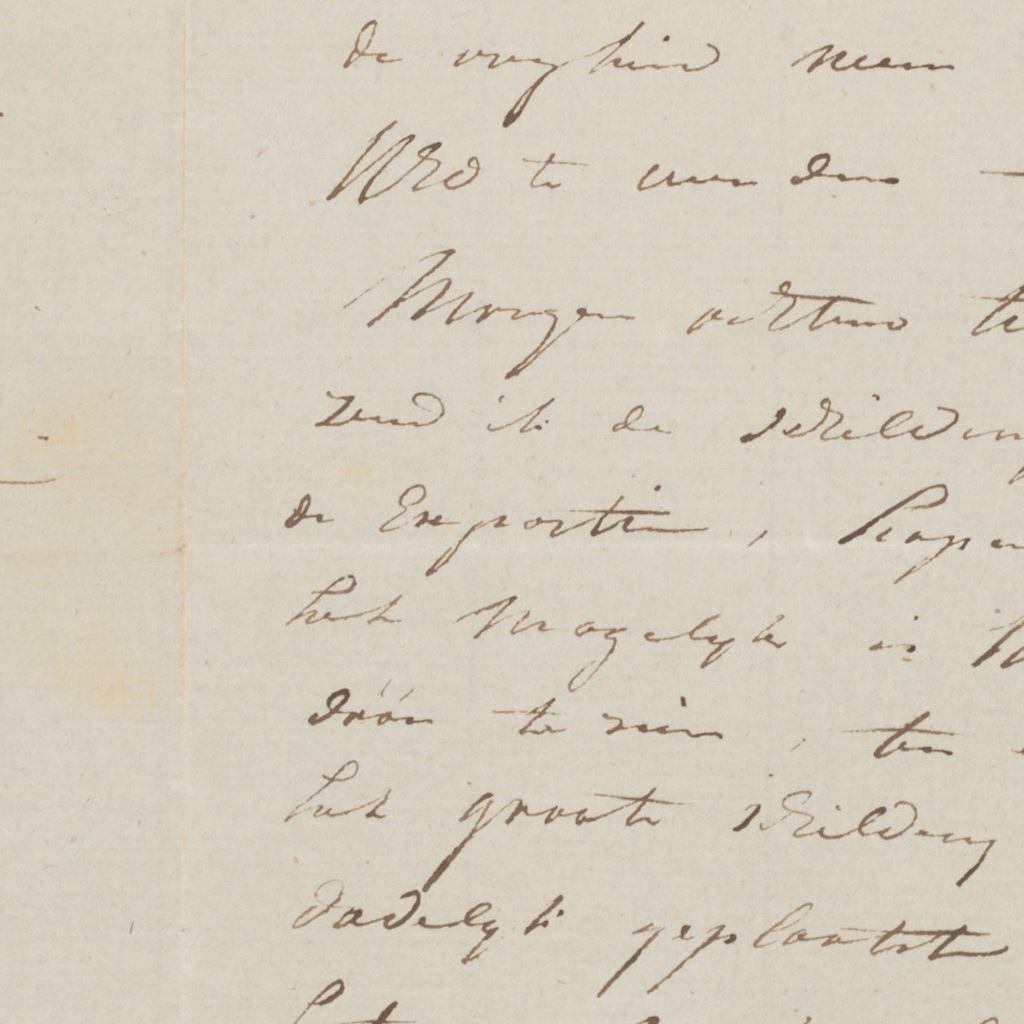 de vryheid neem
UEd te wenden —
Morgen ochtend
zend ik de schildery
de Expositie, hoop
het mogelyk is
dáár te zien, ten
het groote schildery
dadelyk geplaatst